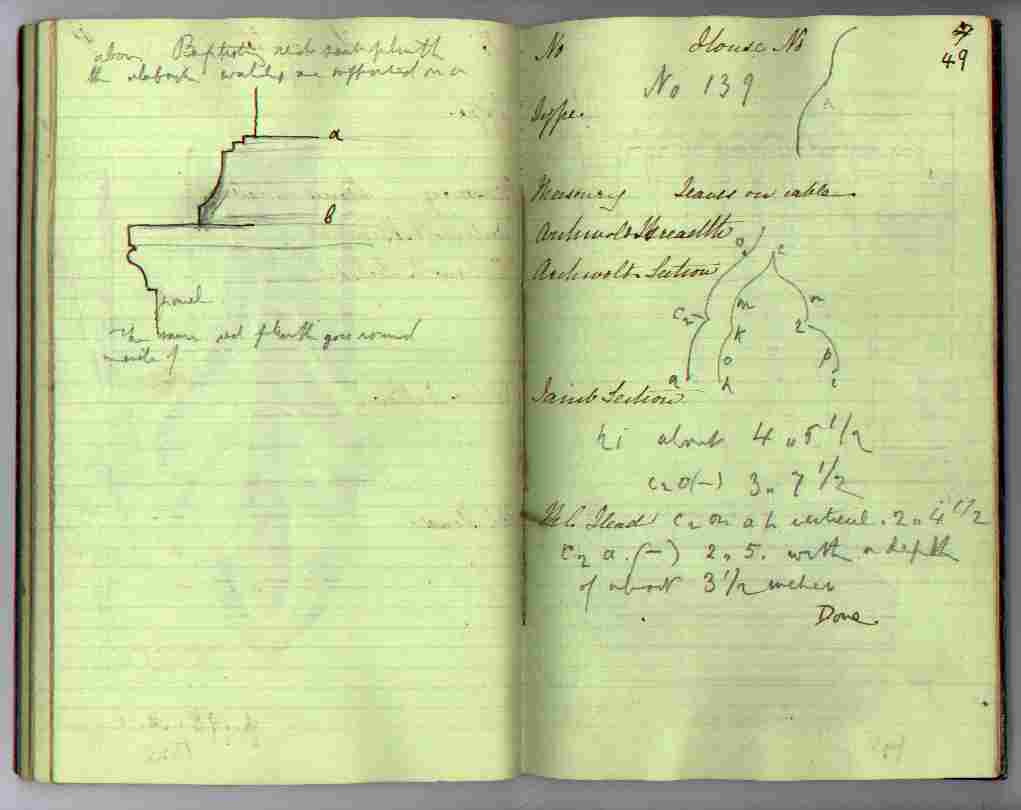 above Baptistery red plinth
the alabaster are supported on a
a
b
The same red plinth goes round
inside of
No House No 49
No 139
Type.
Masonry Leaves on cable
Archivolt Breadth
Archivolt Section
o
c
m
n
c2
k
2
o
p
a
h
i
Jamb Section
hi about 4 „ 5 1/2
c2 o (–) 3 „ 7 1/2
Head c2 on a h vertical . 2 „ 4 1/2
c2 a . (–) 2 „ 5. with a depth
of about 3 1/2 inches
Done.